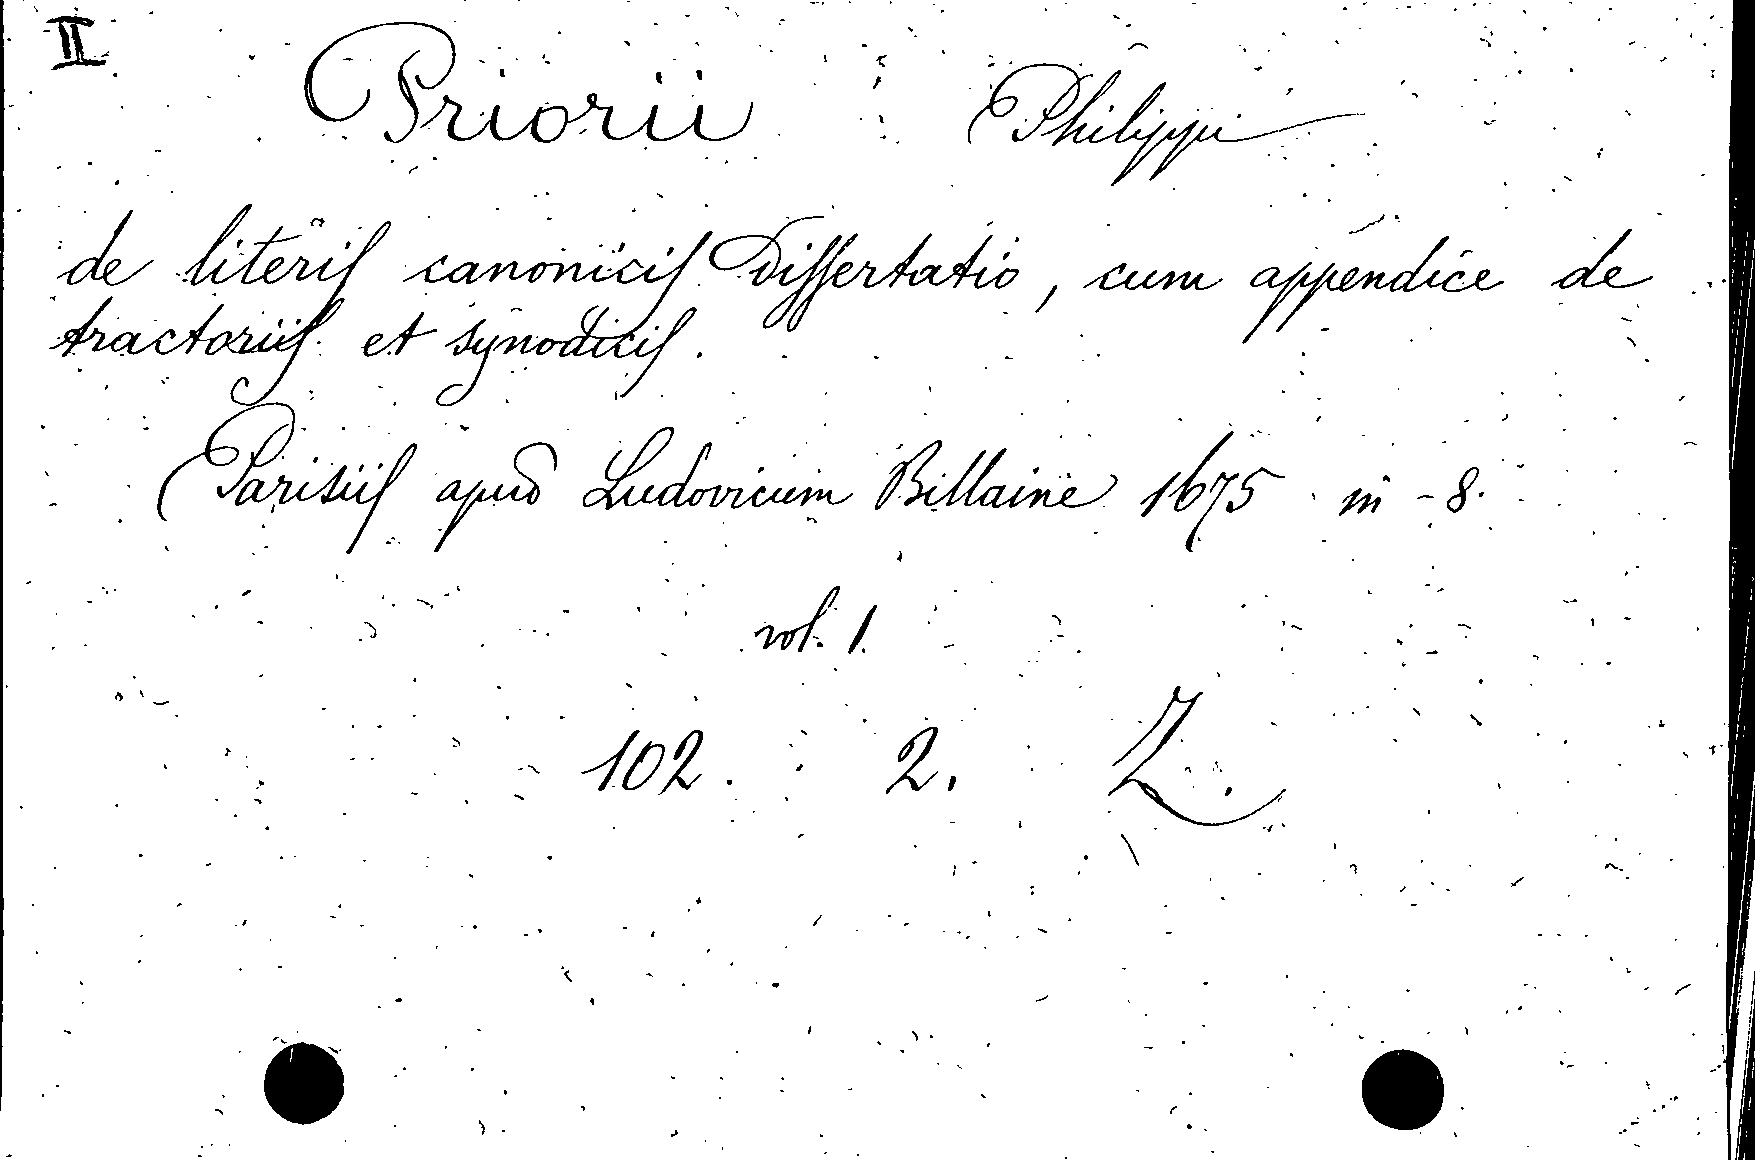 II
Priorii Philippi
de literis canonicis Dissertatio, cum appendice de
tractoriis et synodicis.
Parisiis apud Ludovicum Billaine 1675 in - 8.
vol. 1.
102. 2. Z.